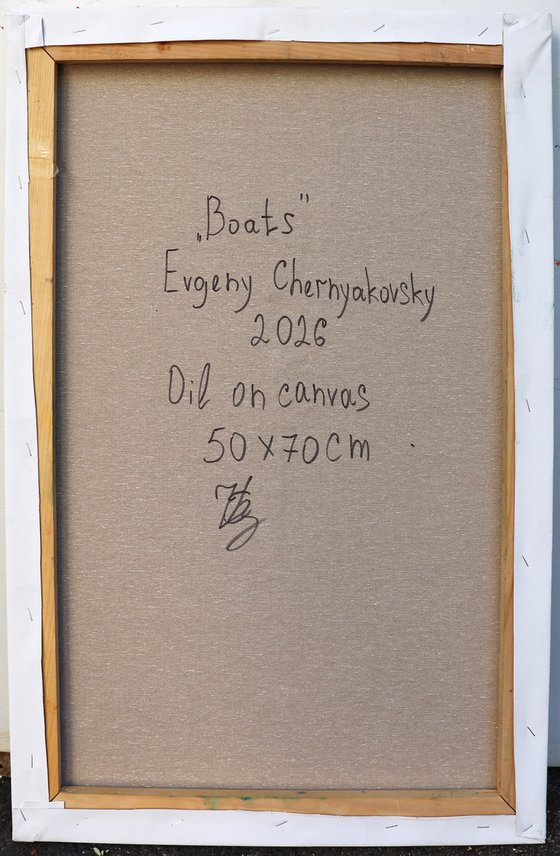 „Boats"
Evgeny Chernyakovsky
2026
Oil on canvas
50 x 70 cm